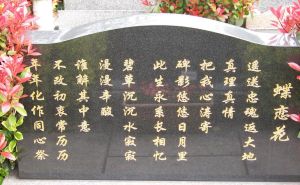 蝶恋花
遥送忠魂运大地
真理真情
把我心涛寄
碑影悠悠日月里
此生永系长相忆
碧草沉沉水寂寂
漫漫辛酸
谁解其中意
不改初衷常历历
年年化作同心祭